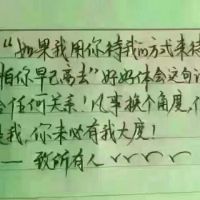 “如果我用你待我的方式来待
怕你早已离去”好好体会这句话
会任何关系！凡事换个角度，
是我，你未必有我大度！
—— 致所有人